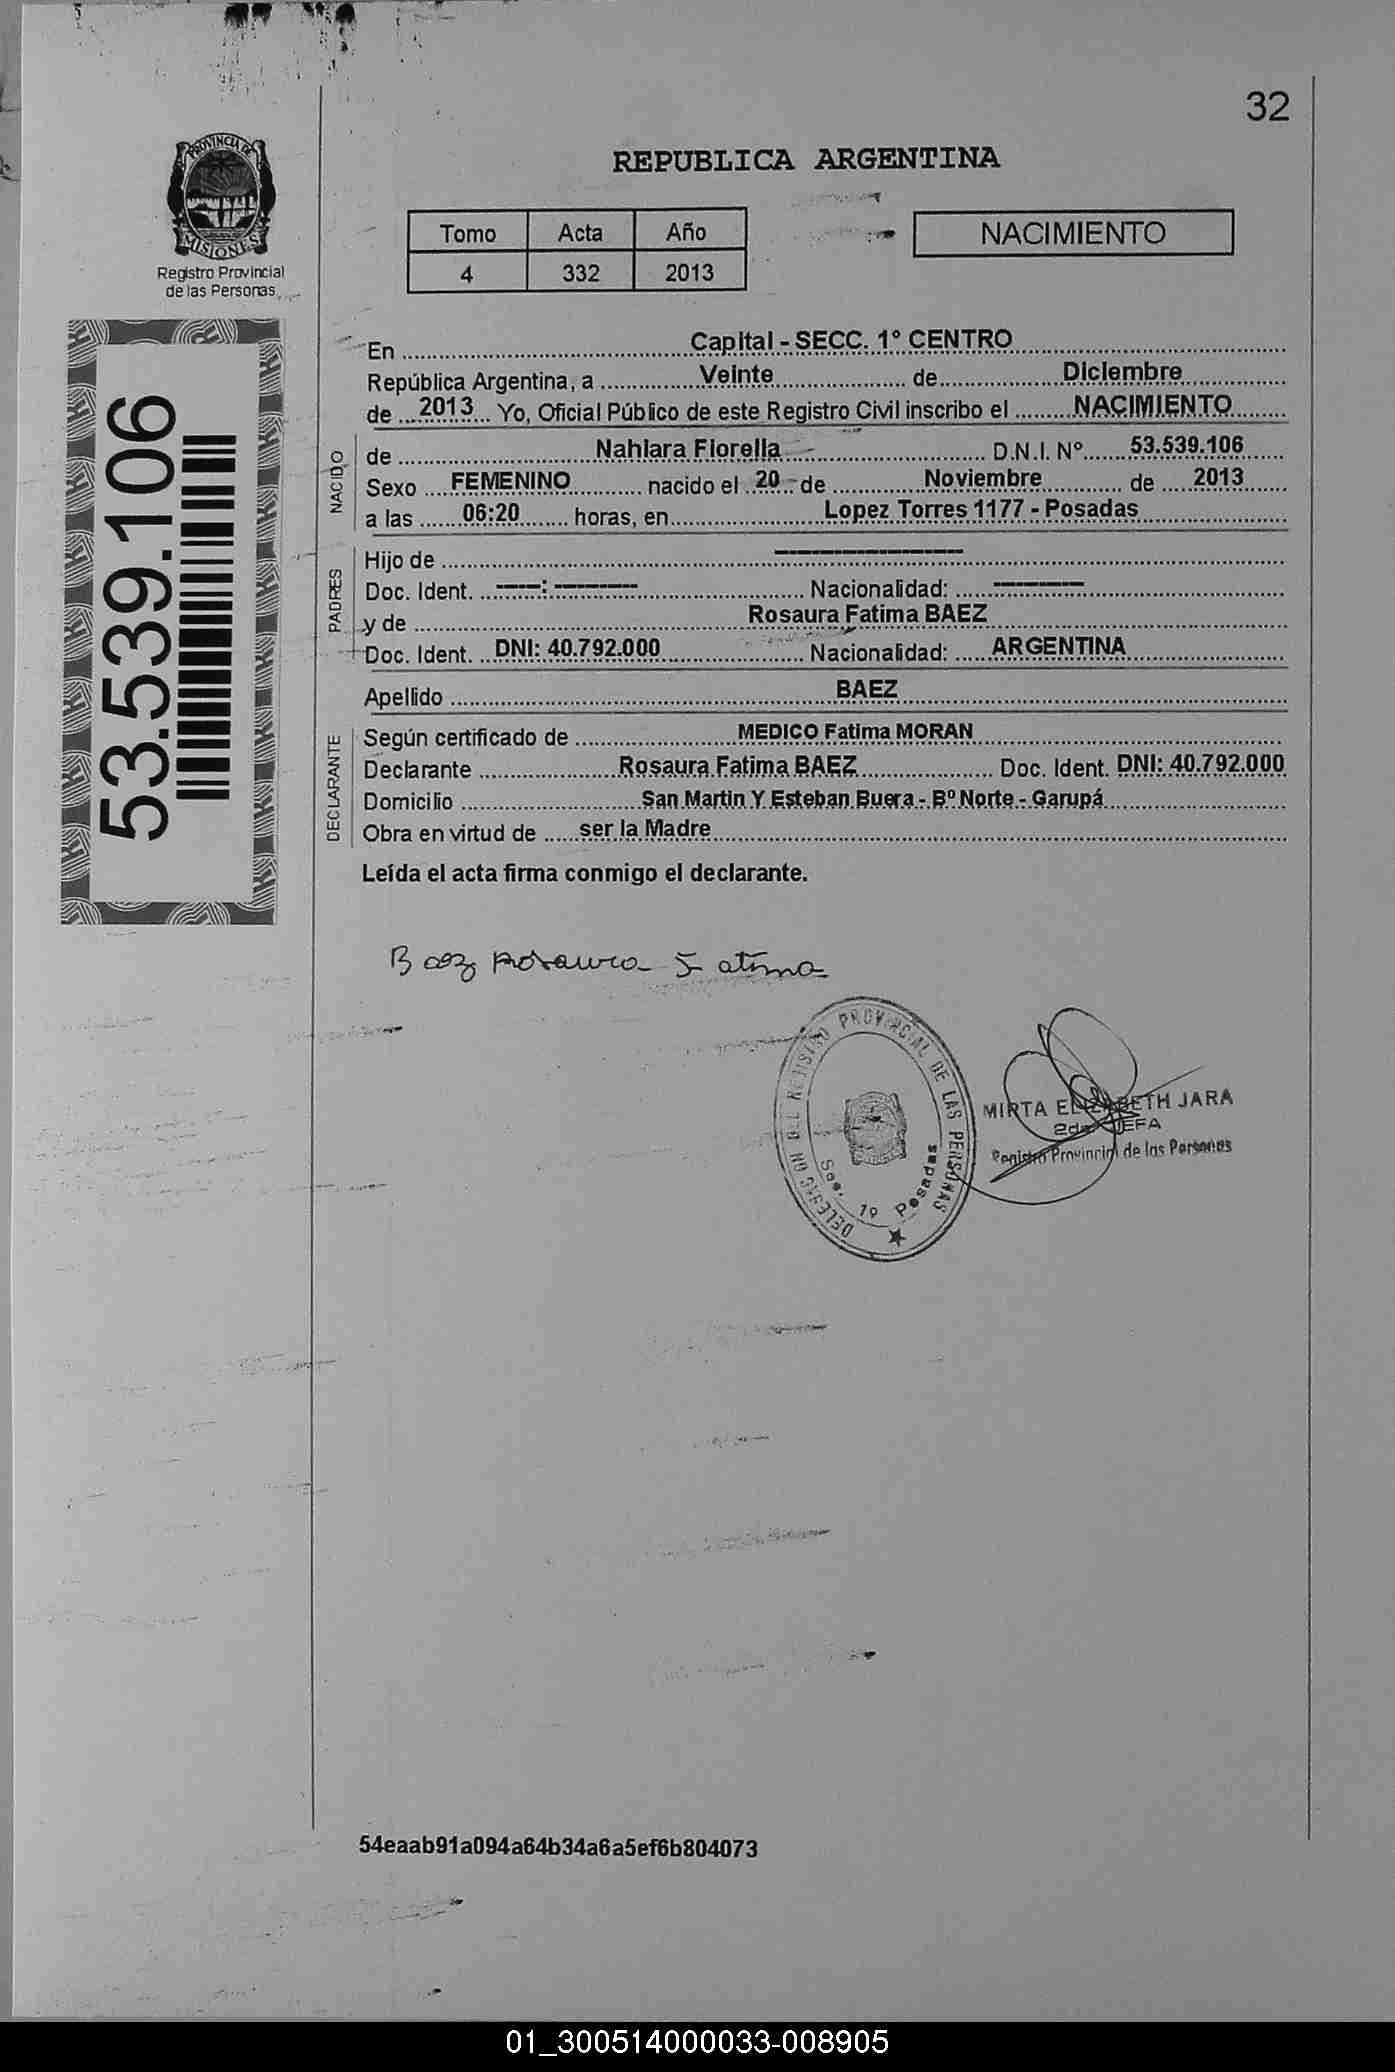 32
PROVINCIA DE
MISIONES
Registro Provincial
de las Personas
REPUBLICA ARGENTINA
Tomo Acta Año
4 332 2013
NACIMIENTO
53.539.106
En Capital - SECC. 1° CENTRO
República Argentina, a Veinte de Diciembre
de 2013 Yo, Oficial Público de este Registro Civil inscribo el NACIMIENTO
NACIDO
de Nahiara Fiorella D.N.I. Nº 53.539.106
Sexo FEMENINO nacido el 20 de Noviembre de 2013
a las 06:20 horas, en Lopez Torres 1177 - Posadas
PADRES
Hijo de ---------------------
Doc. Ident. -----: --------- Nacionalidad: ----------
y de Rosaura Fatima BAEZ
Doc. Ident. DNI: 40.792.000 Nacionalidad: ARGENTINA
Apellido BAEZ
DECLARANTE
Según certificado de MEDICO Fatima MORAN
Declarante Rosaura Fatima BAEZ Doc. Ident. DNI: 40.792.000
Domicilio San Martin Y Esteban Buera - Bº Norte - Garupá
Obra en virtud de ser la Madre
Leída el acta firma conmigo el declarante.
Baez Rosaura Fatima
DELEGACION DEL REGISTRO PROVINCIAL DE LAS PERSONAS
Sec. 1º Posadas
MIRTA ELIZABETH JARA
2da JEFA
Registro Provincial de las Personas
54eaab91a094a64b34a6a5ef6b804073
01_300514000033-008905